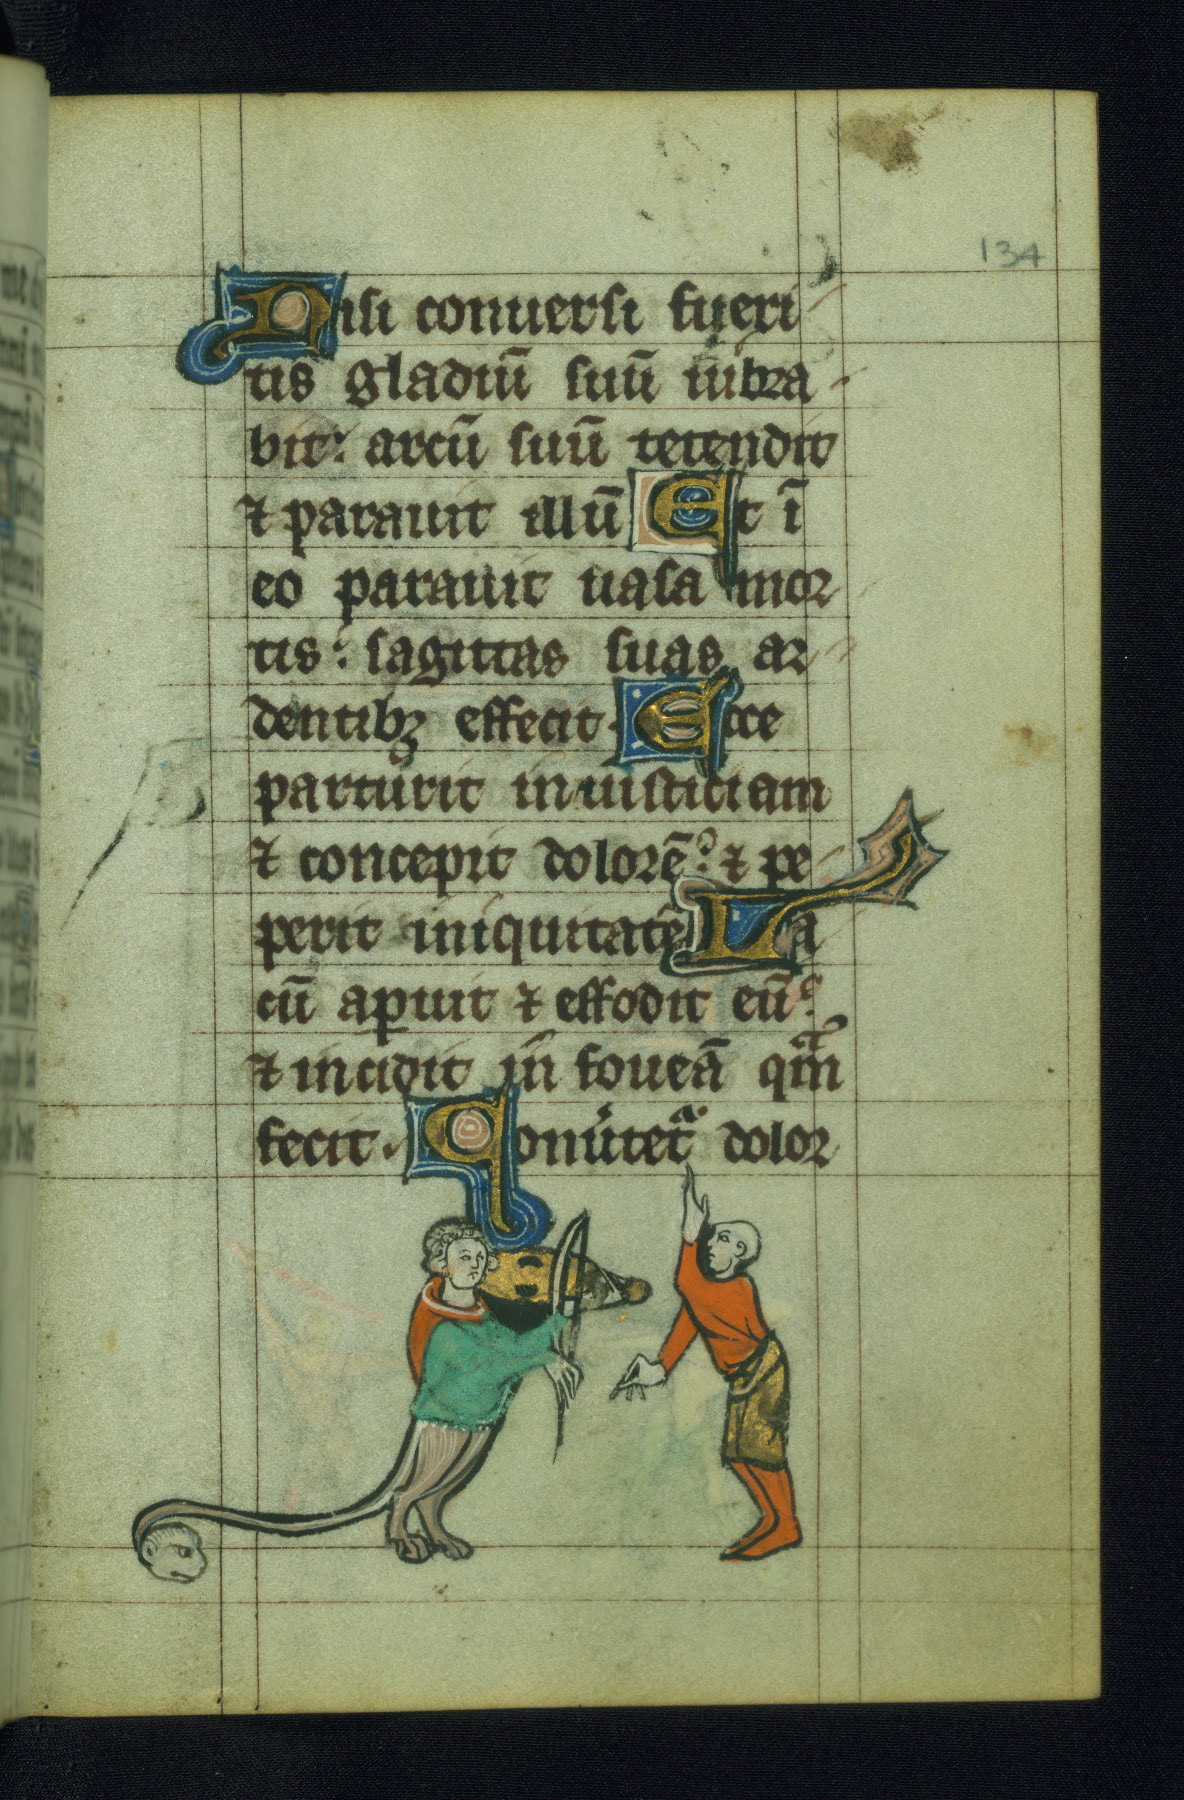 134
Nisi conuersi fueri
tis gladiū suū uibra
bit: arcū suū tetendit
⁊ parauit illū Et ī
eo parauit uasa mor
tis: sagittas suas ar
dentibꝫ effecit. Ecce
parturit iniusticiam
⁊ concepit dolorē: ⁊ pe
perit iniquitatē La
cū aperuit ⁊ effodit eū:
⁊ incidit in foueā qm̄
fecit. Conu͛tetᷓ dolor